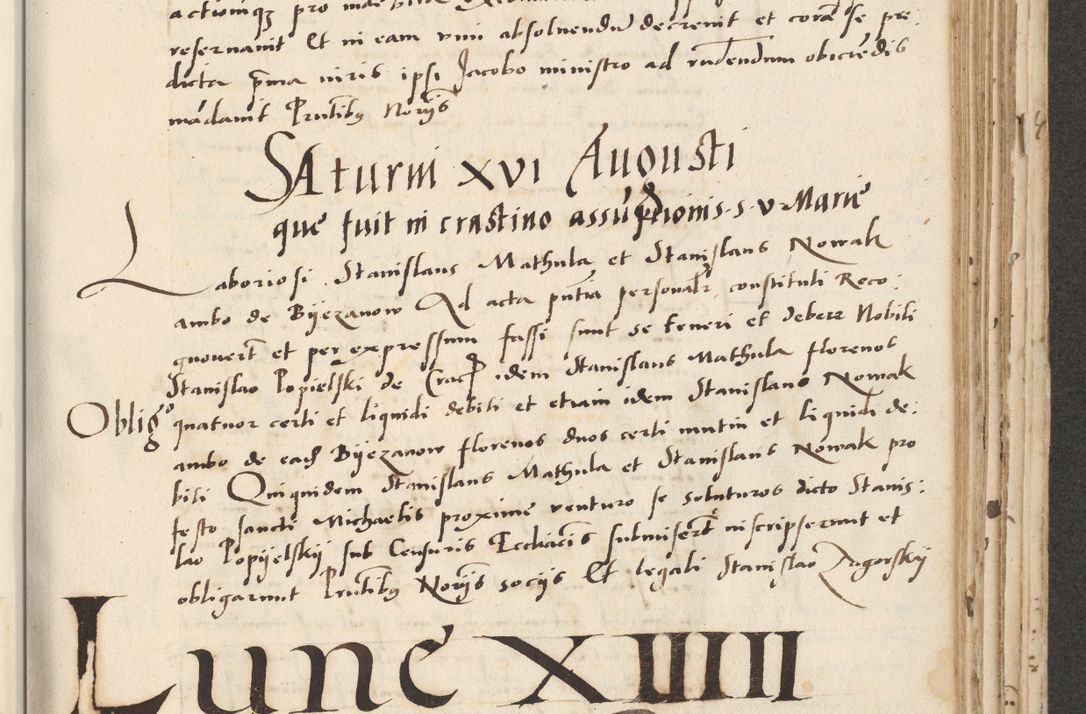 actionıqȝ pro
reseruauit Et in eam vim absoluendũ decreuit et corã se pre:
dicta p̃ma iuris ipsi Jacobo ministro ad rñdendum obiiciẽdis
mãdauit Pñtibȝ Norijs
SAturni xvi Augusti
que fuit in crastino assũptionis s v Marie
Laboriosi Stanislaus Mathula et Stanislaus Nowak
ambo de Bijezanow Ad acta pñtia personalr̃ constituti Reco:
gnouert̃ et per expressum fassi sunt se teneri et debere Nobili
Stanislao Popielski de Crac idem Stanislaus Mathula florenos
Obligo quatuor certi et liquidi debiti et etiam idem Stanislaus Nowak
ambo de ead Bijezanow florenos duos certi mutui et liquidi de:
biti Quiquidem Stanislaus Mathula et Stanislaus Nowak pro
festo sancti Michaelis proxime venturo se soluturos dicto Stanis:
lao Popijelskij sub Censuris Ecclĩcis submisert̃ inscripserunt et
obligarunt Pñtibȝ Norijs socijs Et legali Stanislao Zagorskij
Lune XIIII